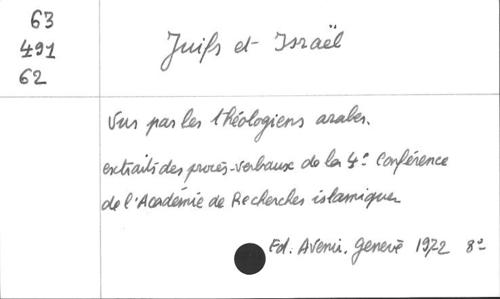 63
491
62
Juifs et Israël
Vus par les théologiens arabes.
extraits des procès-verbaux de la 4e Conférence
de l'Académie de Recherches islamiques
Ed. Avenir, Genève 1972 8°